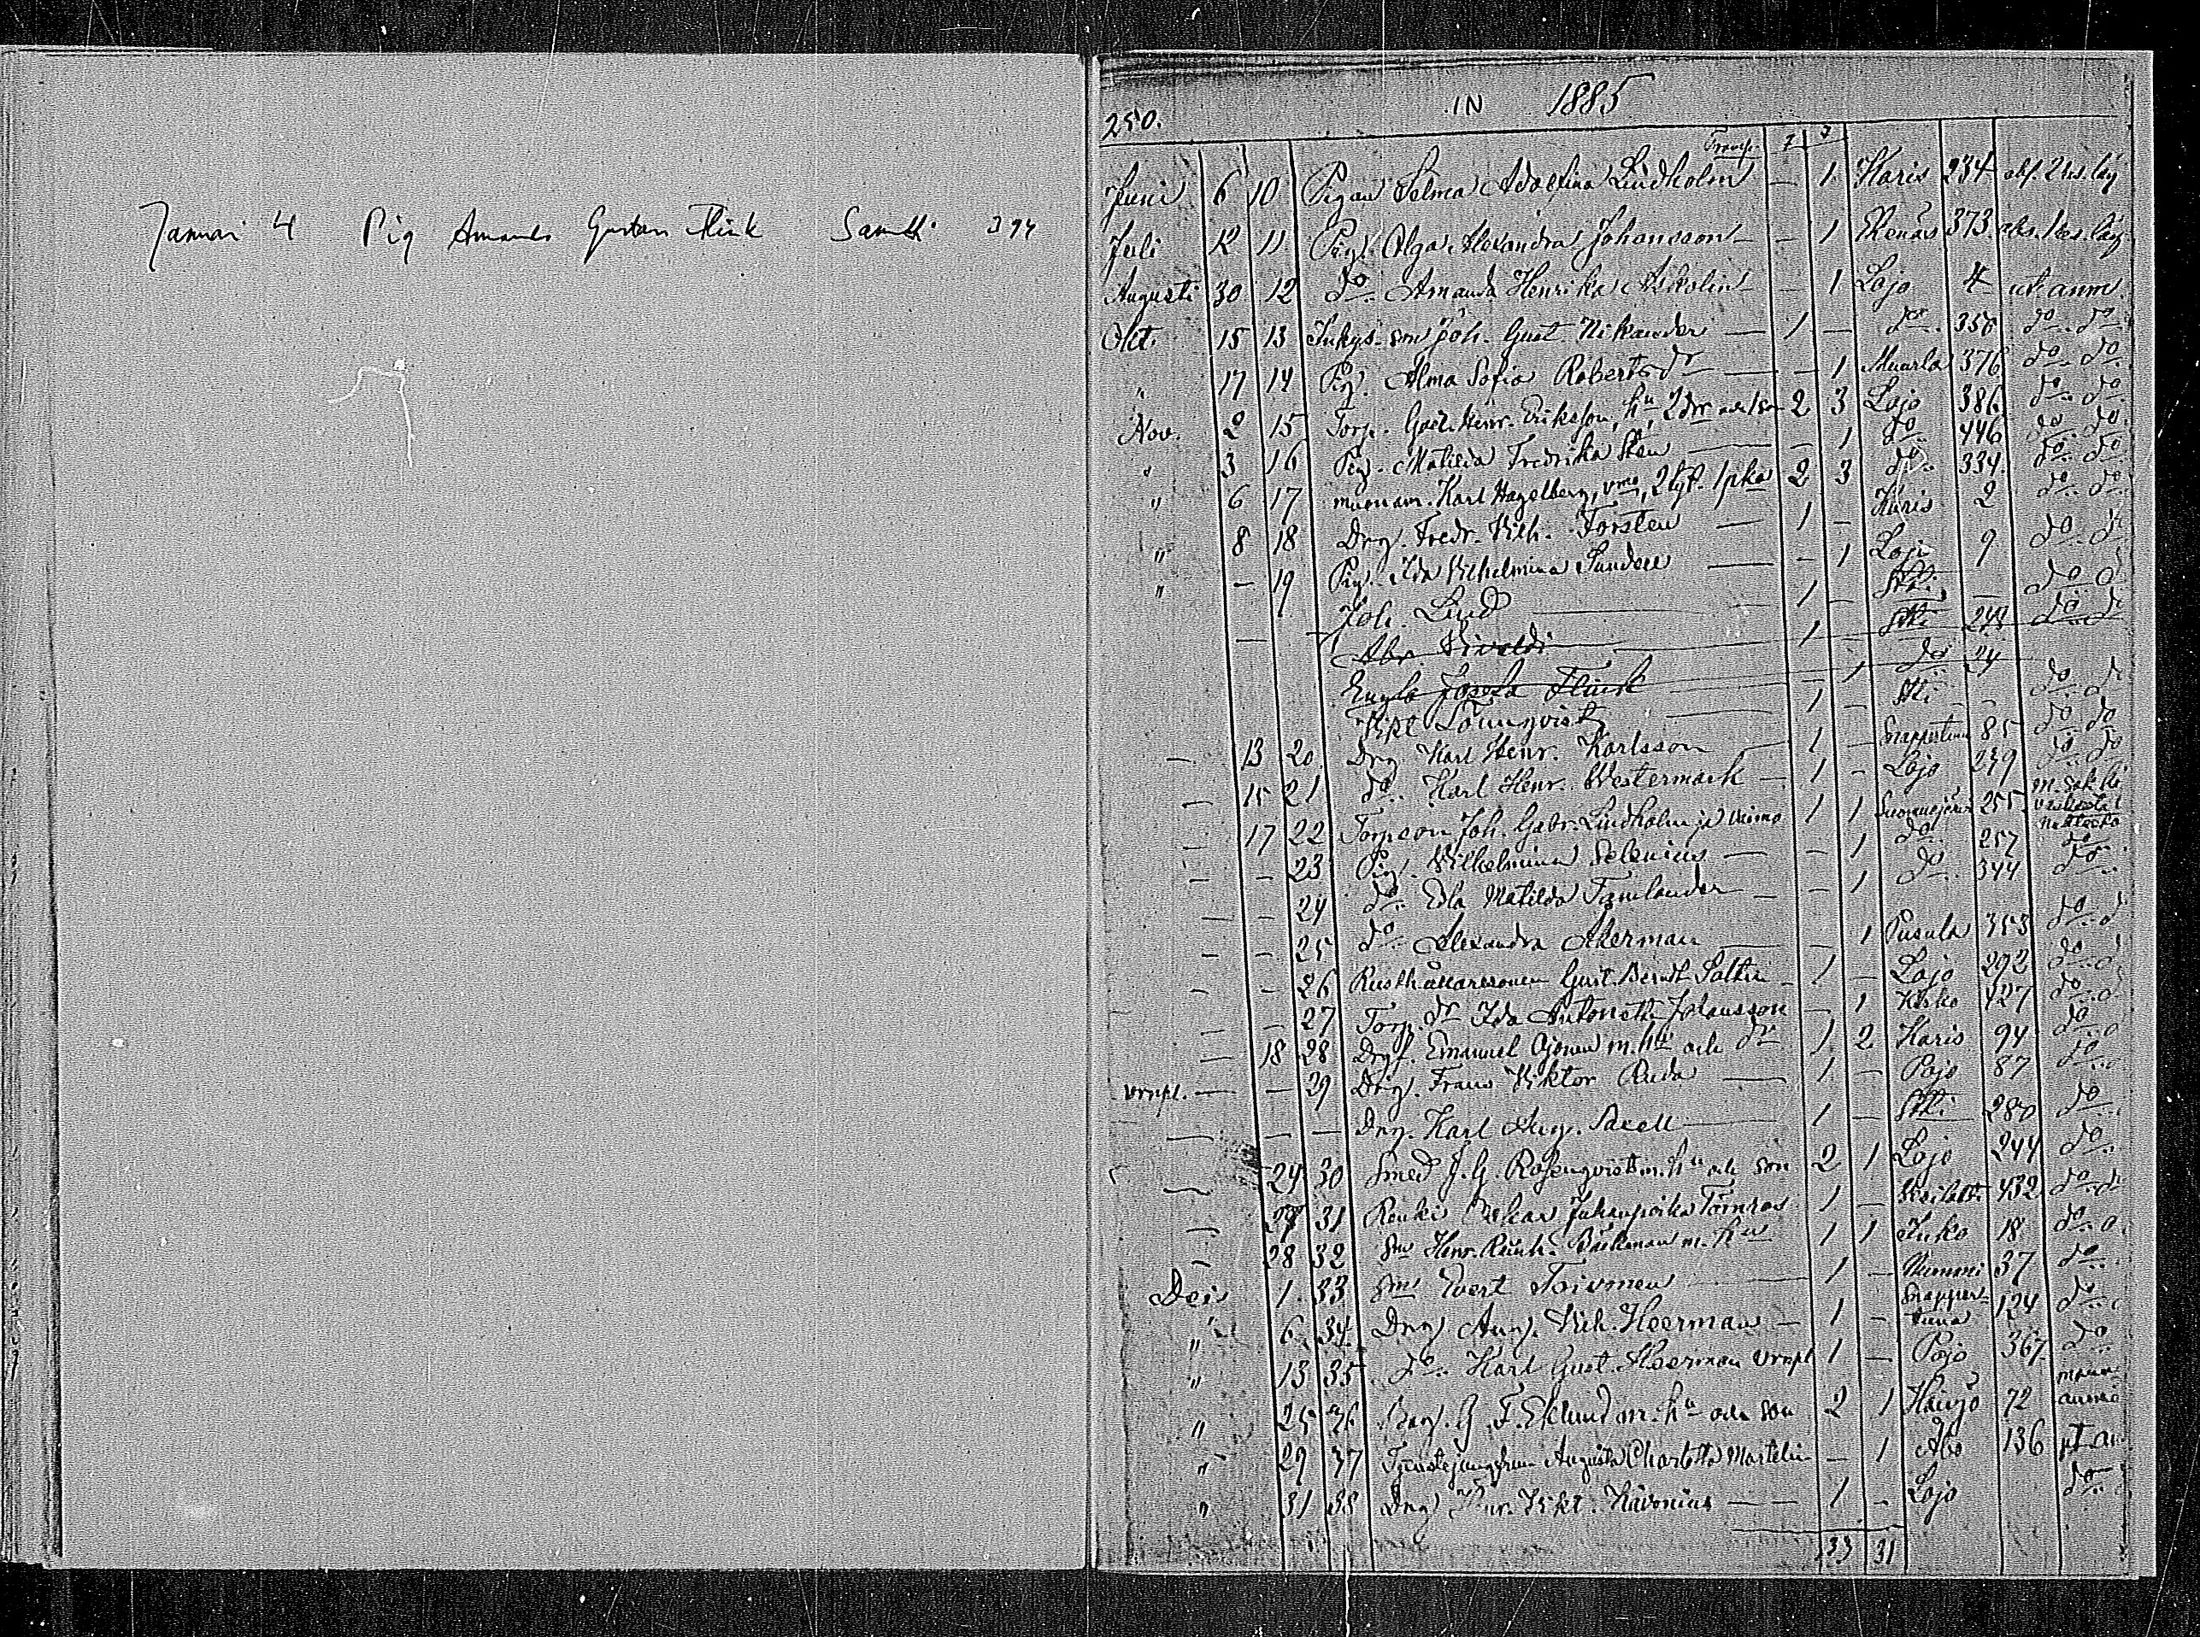 Januari 4 Pig Amanda Gustava Flink Samatti 394
250. IN 1885
Transp. 7 7
Juni 6 10 Pigan Selma Adolfina Lindholm — 1 Karis 234
Juli 12 11 Pig. Olga Alexandra Johansson — 1 Ekenäs 373
Augusti 30 12 do Amanda Henrika Askolin — 1 Lojo 4 utan anm.
Okt. 15 13 Inhys. son Joh. Gust. Nikander 1 — do 358 do do
" 17 14 Pig. Alma Sofia Robertsdr — 1 Muurla 376 do do
Nov. 2 15 Torp. Gust. Henr. Eriksson, hu, 2 dr och 1 son 2 3 Lojo 386 do do
" 3 16 Pig. Matilda Fredrika Sten — 1 do 446 do do
" 6 17 muonam. Karl Hagelberg, vmo, 2 tyt. 1 pka 2 3 do 334 do do
" 8 18 Drg. Fredr. Vilh. Forsten 1 — Karis 2 do do
" — 19 Pig. Ida Vilhelmina Sundell — 1 Lojo 9 do do
Joh. Lind 1 — Stti — do do
— Abr. 1 Stti 244 do do
Engla Josefa Flink — 1 do 24
Vikt. Lönnqvist 1 — Stti — do do
— 13 20 Drg. Karl Henr. Karlsson 1 — Snappertuna 85 do do
— 15 21 do Karl Henr. Westermark 1 — Lojo 239 do do
— 17 22 Torp. son Joh. Gabr. Lindholm ja vaimo 1 1 Suomusjärvi 255
— — 23 Pig. Vilhelmina Selenius — 1 do 257 do
— — 24 do Edla Matilda Törnlander — 1 do 344 do
— — 25 do Alexandra Åkerman — 1 Pusula 353 do
— — 26 Rusthållaresonen Gust. Bernt 1 — Lojo 292 do
— — 27 Torp. dr Ida Antonetta Johansson — 1 Kisko 427 do
— 18 28 Drg. Emanuel Ojonen m. hu och dr 1 2 Karis 94 do
vrnpl. — — 29 Drg. Frans Viktor Ruda 1 — Pojo 87 do
— — — Drg. Karl Aug. Saxell 1 — Stti 280 do
— 24 30 Smed J. G. Rosenqvist m. hu och son 2 1 Lojo 244 do
— 27 31 Renki Oskar Juhanpoika Törnros 1 — 432 do
— 28 32 Sm. Henr. Reinh. Bäckman m. hu 1 1 Inko 18 do
Dec. 1 33 Sm. Evert Toivonen 1 — Nummi 37 do
" 6 34 Drg. Aug. Vilh. Hoerman 1 — Snappertuna 124 do
" 13 35 do Karl Gust. Hoerman vrnpl 1 — Pojo 367 do
" 25 36 G. F. Eklund m. hu och son 2 1 72
" 29 37 Tjenstejungfrun Augusta Charlotta Martelin — 1 Åbo 136 ut. an
" 31 38 Drg. Henr. Vikt. Hävonius 1 — Lojo do
33 31